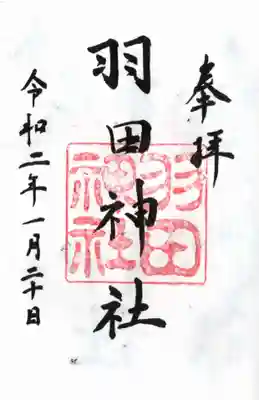 奉拝
羽田神社
羽田
神社
令和二年一月二十日